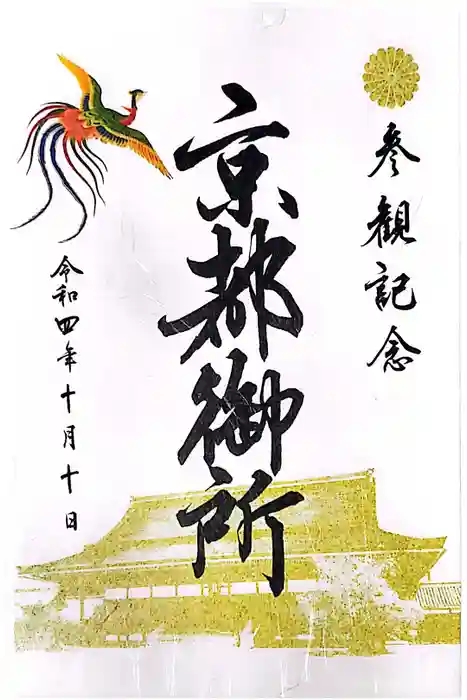 参観記念
京都御所
令和四年十月十日